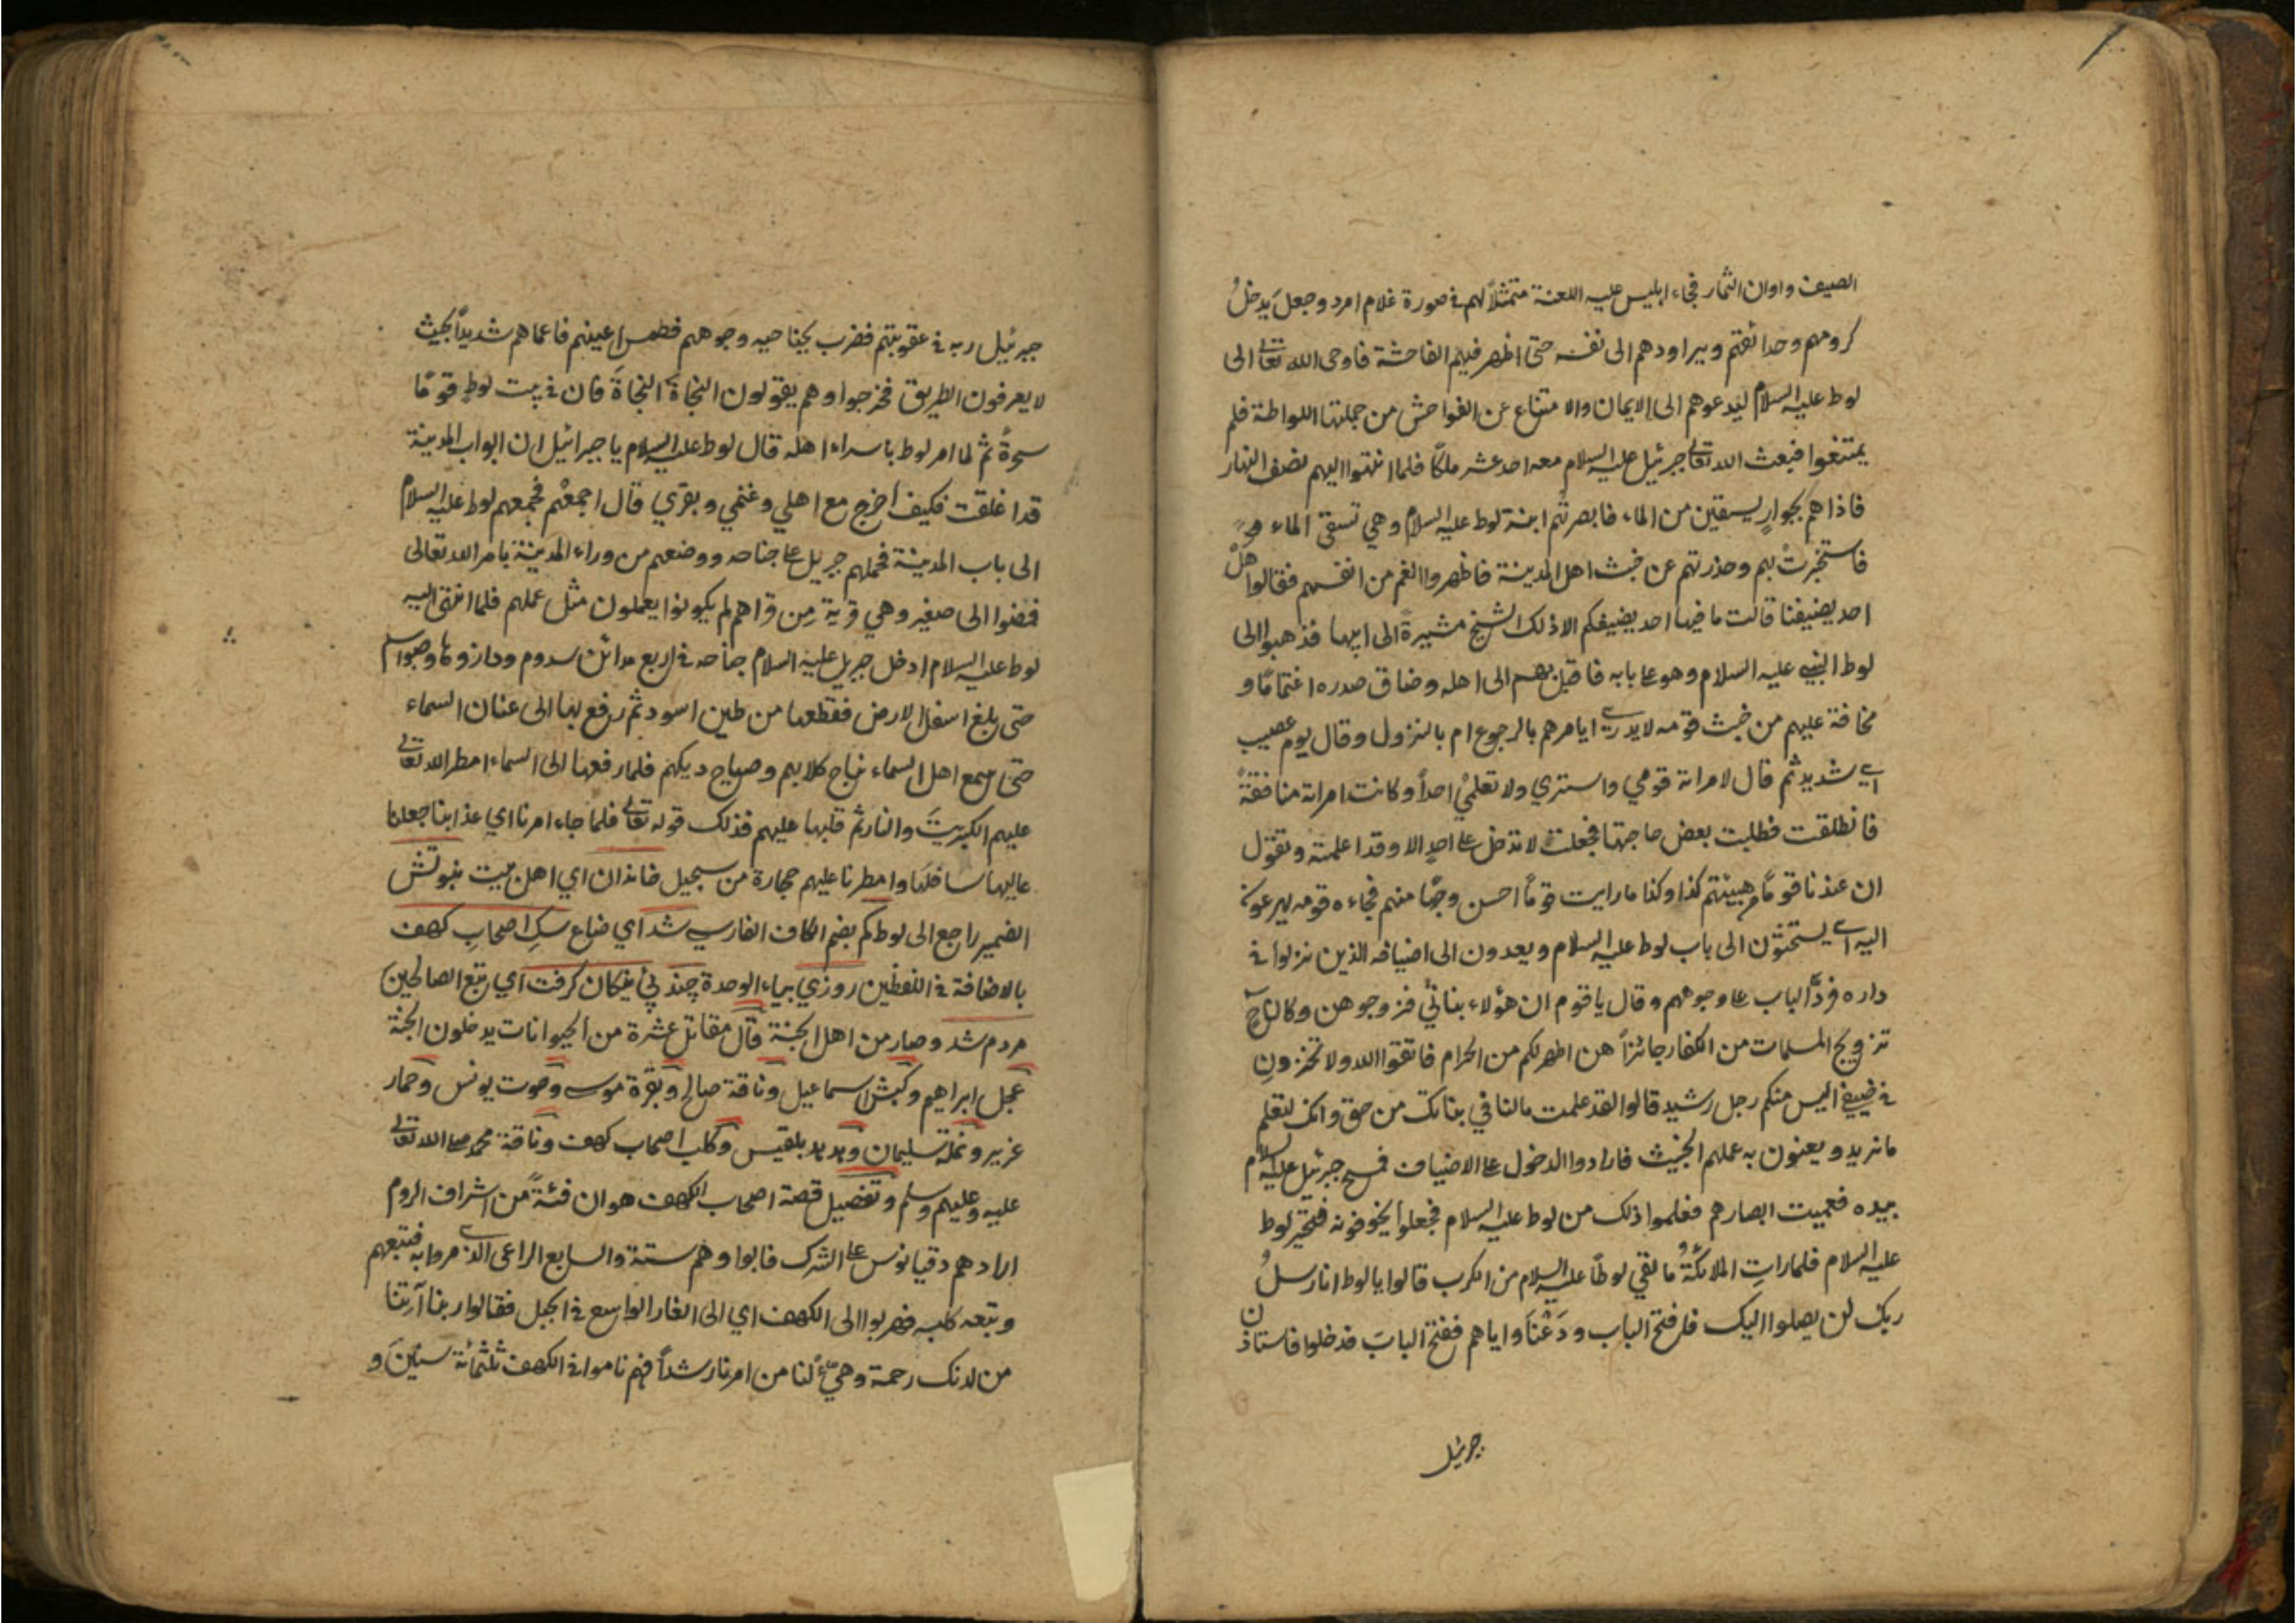 الصيف واوان الثمار فجاء ابليس عليه اللعنة متمثلاً لهم في صورة غلام امرد وجعل يدخل
كرومهم وحدائقهم ويراودهم الى نفسه حتى اظهر فيهم الفاحشة فاوحى الله تعالى الى
لوط عليه السلام ليدعوهم الى الايمان والامتناع عن الفواحش من جملتها اللواطة فلم
يمتنعوا فبعث الله تعالى جبرئيل عليه السلام معه احد عشر ملكاً فلما انتهوا اليهم نصف النهار
فاذا هم بجوارٍ يستقين من الماء فابصرتهم ابنة لوط عليه السلام وهي تستقي الماء
فاستخبرت بهم وحذرتهم عن خبث اهل المدينة فاظهروا الغم من انفسهم فقالوا هل
احد يضيفنا قالت ما فيها احد يضيفكم الا ذلك الشيخ مشيرةً الى ابيها فذهبوا الى
لوط النبي عليه السلام وهو على بابه فاقبل بهم الى اهله وضاق صدره اغتماماً و
مخافة عليهم من خبث قومه لا يدري ايامرهم بالرجوع ام بالنزول وقال يوم عصيب
اي شديد ثم قال لامراته قومي واستري ولا تعلمي احداً وكانت امراته منافقةً
فانطلقت فطلبت بعض حاجتها فجعلت لا تدخل على احدٍ الا وقد اعلمته وتقول
ان عندنا قوماً هيئتهم كذا وكذا ما رايت قوماً احسن وجهًا منهم فجاءه قومه يهرعون
اليه اي يستحثون الى باب لوط عليه السلام ويعدون الى اضيافه الذين نزلوا في
داره فردّ الباب على وجوههم وقال يا قوم ان هؤلاء بناتي فزوجوهن وكان
تزويج المسلمات من الكفار جائزاً هن اطهر لكم من الحرام فاتقوا الله ولا تخزون
في ضيفي اليس منكم رجل رشيد قالوا لقد علمت ما لنا في بناتك من حق وانك لتعلم
ما نريد ويعنون به عملهم الخبيث فارادوا الدخول على الاضياف فمسح جبرئيل عليه السلام
بيده فعميت ابصارهم فعلموا ذلك من لوط عليه السلام فجعلوا يخوفونه فتحير لوط
عليه السلام فلما رات الملائكةُ ما لقي لوطاً عليه السلام من الكرب قالوا يا لوط انا رسلُ
ربك لن يصلوا اليك فافتح الباب ودَعْنَا واياهم ففتح الباب فدخلوا فاستاذن
جبرئيل
جبرئيل ربه في عقوبتهم فضرب بجناحيه وجوههم فطمس اعينهم فاعماهم شديداً بحيث
لا يعرفون الطريق فخرجوا وهم يقولون النجاة النجاة فان في بيت لوط قومًا
سحرةً ثم لما امر لوط باسراء اهله قال لوط عليه السلام يا جبرائيل ان ابواب المدينة
قد اغلقت فكيف اخرج مع اهلي وغنمي وبقري قال اجمعهم فجمعهم لوط عليه السلام
الى باب المدينة فحملهم جبريل على جناحه ووضعهم من وراء المدينة بامر الله تعالى
فمضوا الى صغير وهي قرية من قراهم لم يكونوا يعملون مثل عملهم فلما انتهى اليه
لوط عليه السلام ادخل جبريل عليه السلام جناحه في اربع مدائن سدوم
حتى بلغ اسفل الارض فقطعها من طين اسود ثم رفع بها الى عنان السماء
حتى سمع اهل السماء نباح كلابهم وصياح ديكهم فلما رفعها الى السماء امطر الله تعالى
عليهم الكبريتَ والنار ثم قلبها عليهم فذلك قوله تعالى فلما جاء امرنا اي عذابنا جعلنا
عاليها سافلها وامطرنا عليهم حجارة من سجيل خاندان اي اهل بيت نبوتش
الضمير راجع الى لوط كم بضم الكاف الفارسي شد اي ضاع سكِ اصحابِ كهف
بالاضافة في اللفظين روزي بياء الوحدة چند پي نيكان كرفت اي تبع الصالحين
مردم شد وصار من اهل الجنة قال مقاتل عشرة من الحيوانات يدخلون الجنة
عجل ابراهيم وكبش اسماعيل وناقة صالح وبقرة موسى وحوت يونس وحمار
عزير ونملة سليمان وهدهد بلقيس وكلب اصحاب كهف وناقة محمد صلى الله تعالى
عليه وعليهم وسلم وتفصيل قصة اصحاب الكهف هو ان فئةً من اشراف الروم
ارادهم دقيانوس على الشرك فابوا وهم ستة والسابع الراعي الذي مروا به فتبعهم
وتبعه كلبه فهربوا الى الكهف اي الى الغار الواسع في الجبل فقالوا ربنا آتنا
من لدنك رحمة وهيّئ لنا من امرنا رشداً فهم ناموا في الكهف ثلثمائة سنين و